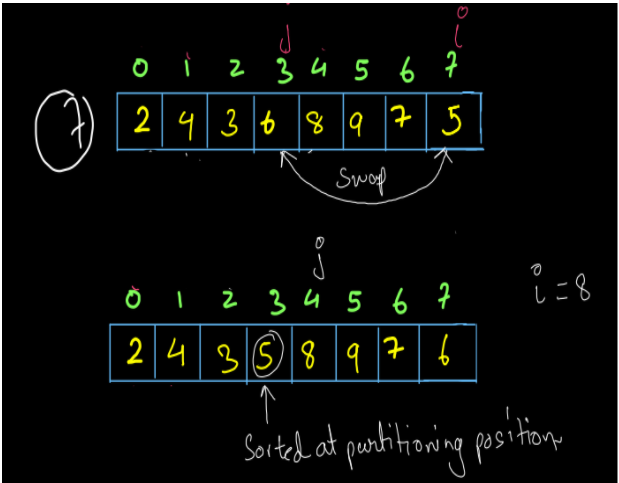 j i
0 1 2 3 4 5 6 7
7 2 4 3 6 8 9 7 5
Swap
j
0 1 2 3 4 5 6 7 i = 8
2 4 3 5 8 9 7 6
Sorted at partitioning position